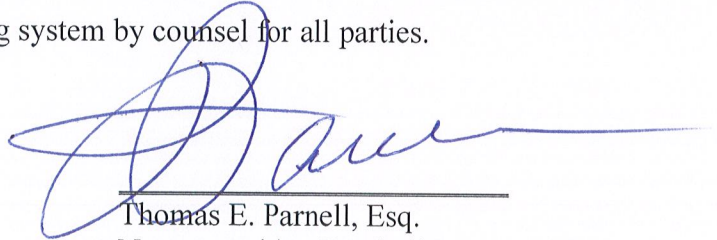 g system by counsel for all parties.
Thomas E. Parnell, Esq.